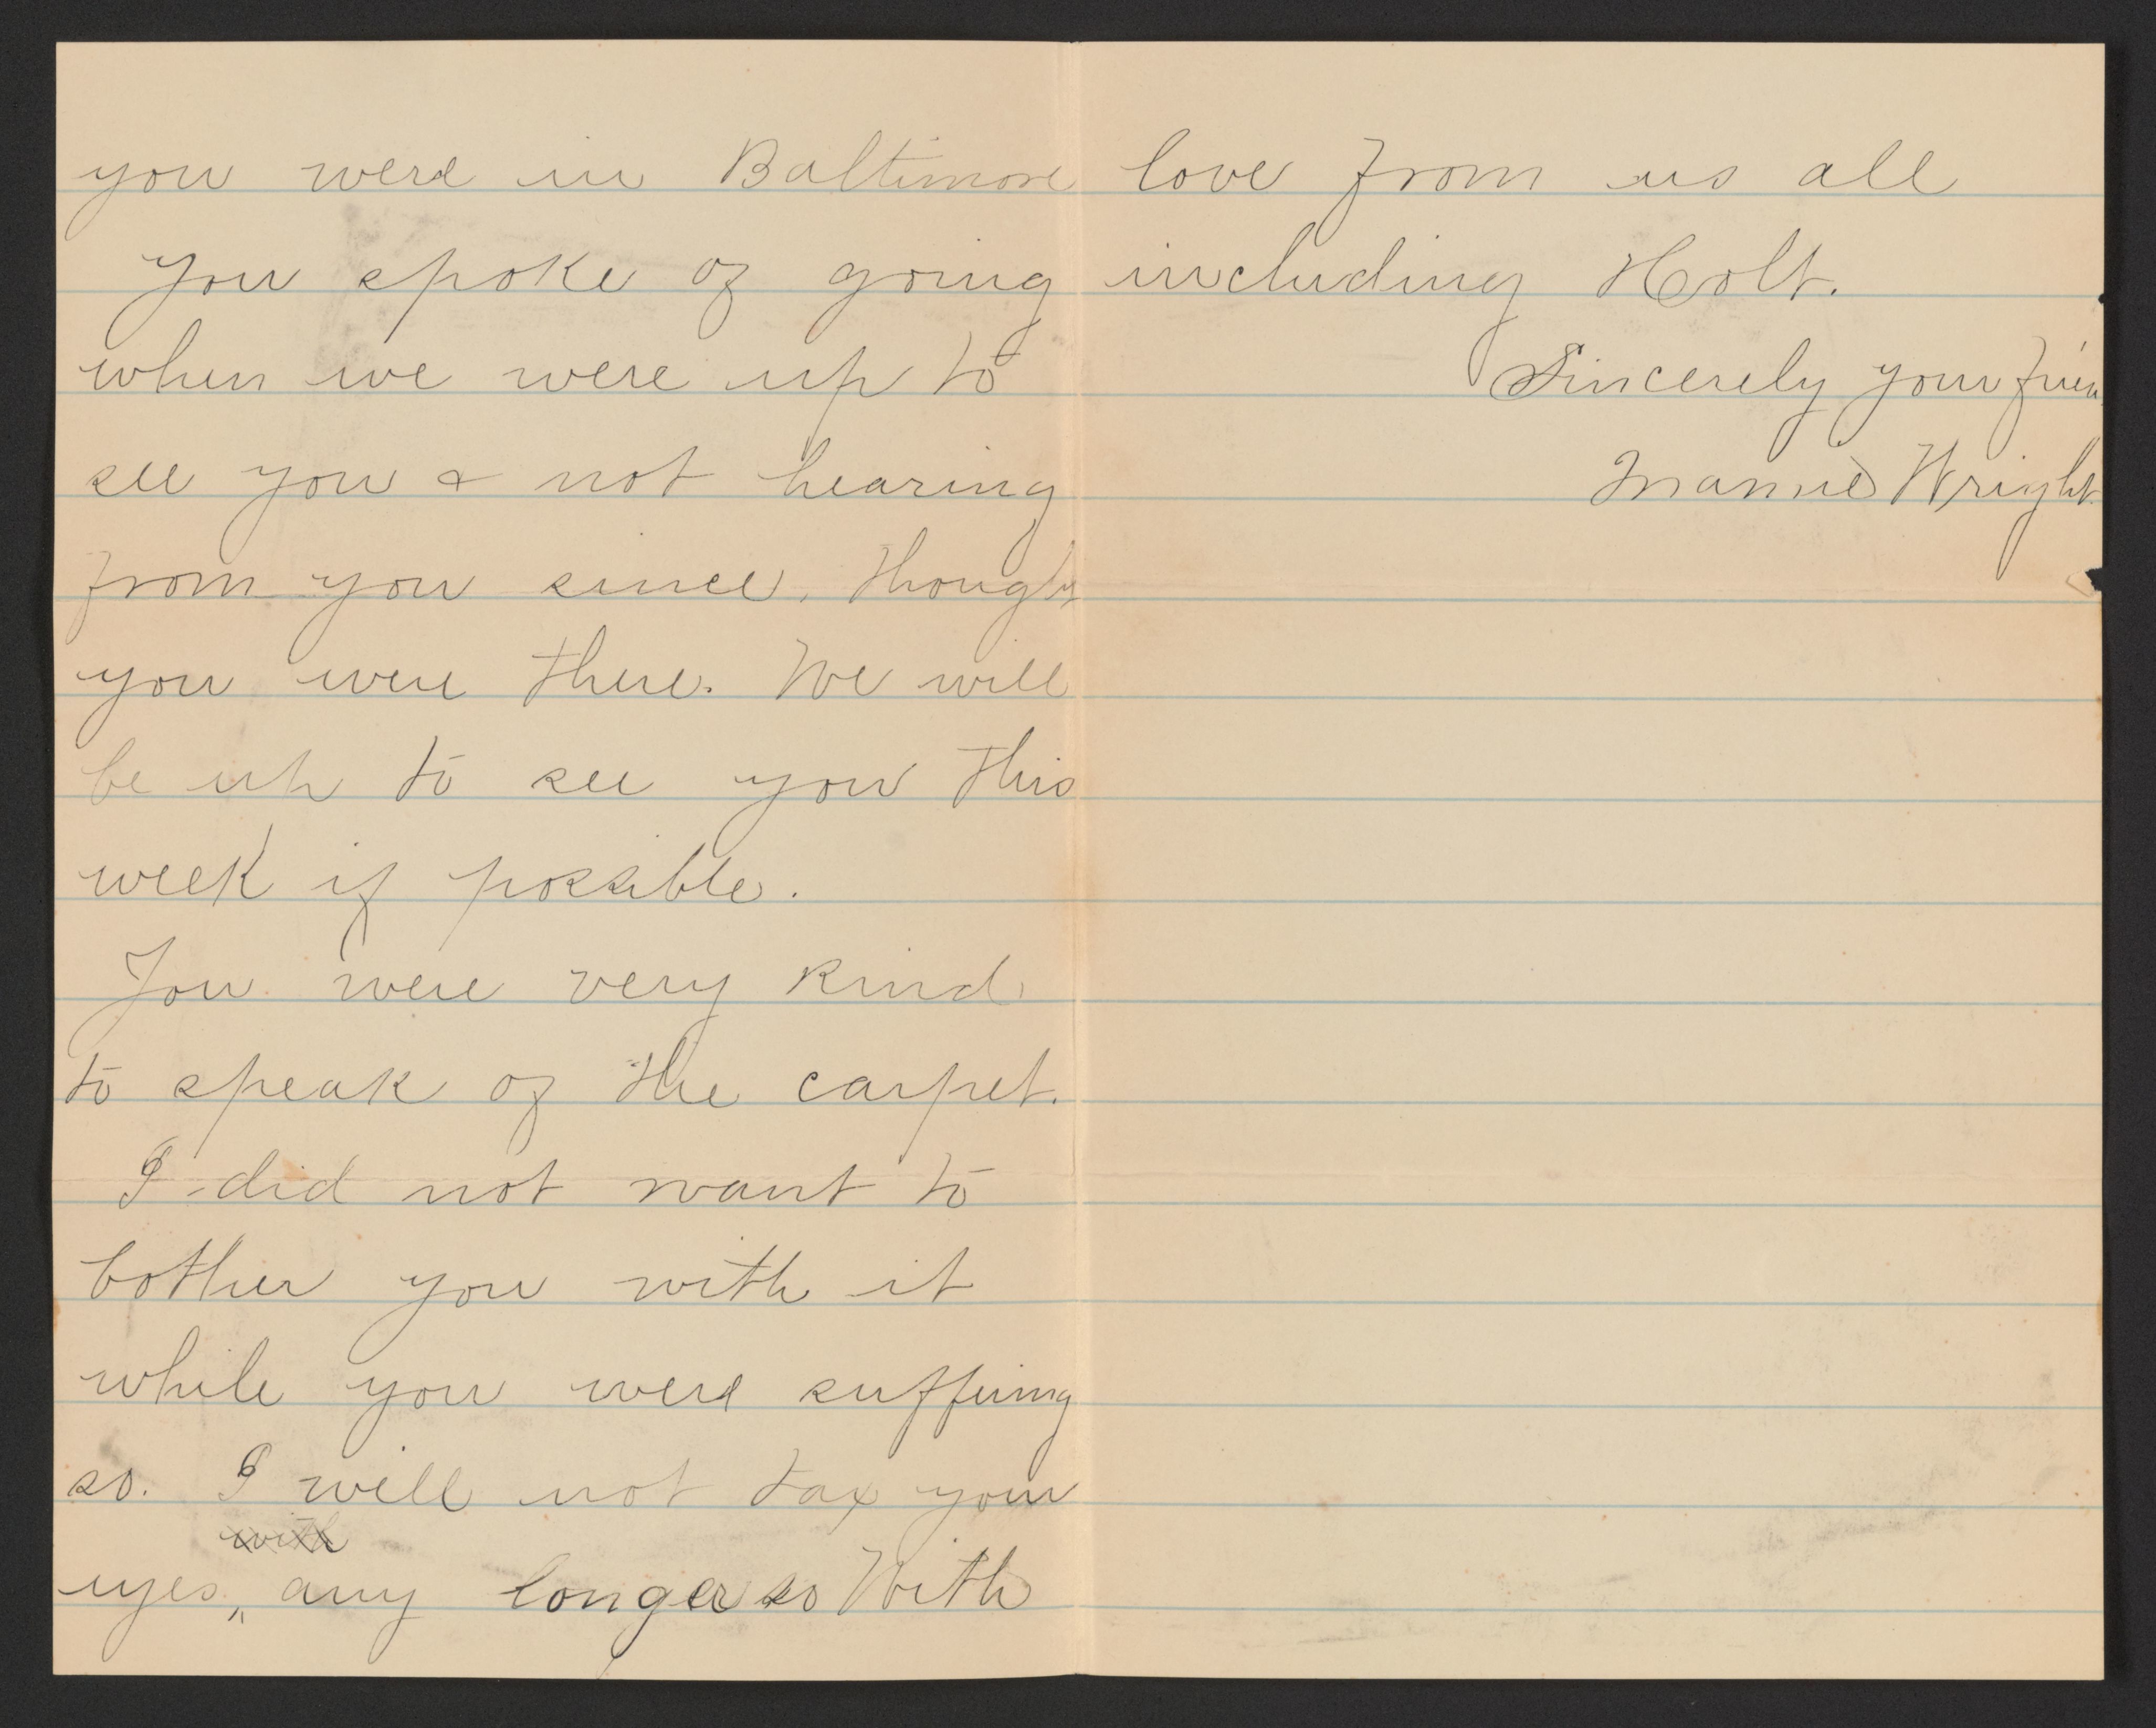 you were in Baltimore
You spoke of going
when we were up to
see you & not hearing
from you since, thought
you were there. We will
be up to see you this
week if possible.
You were very kind
to speak of the carpet.
I did not want to
bother you with it
while you were suffering
so. I will not tax your
with
eyes, any longer so With
love from us all
including Holt.
Sincerely your frien
Mannie Wright